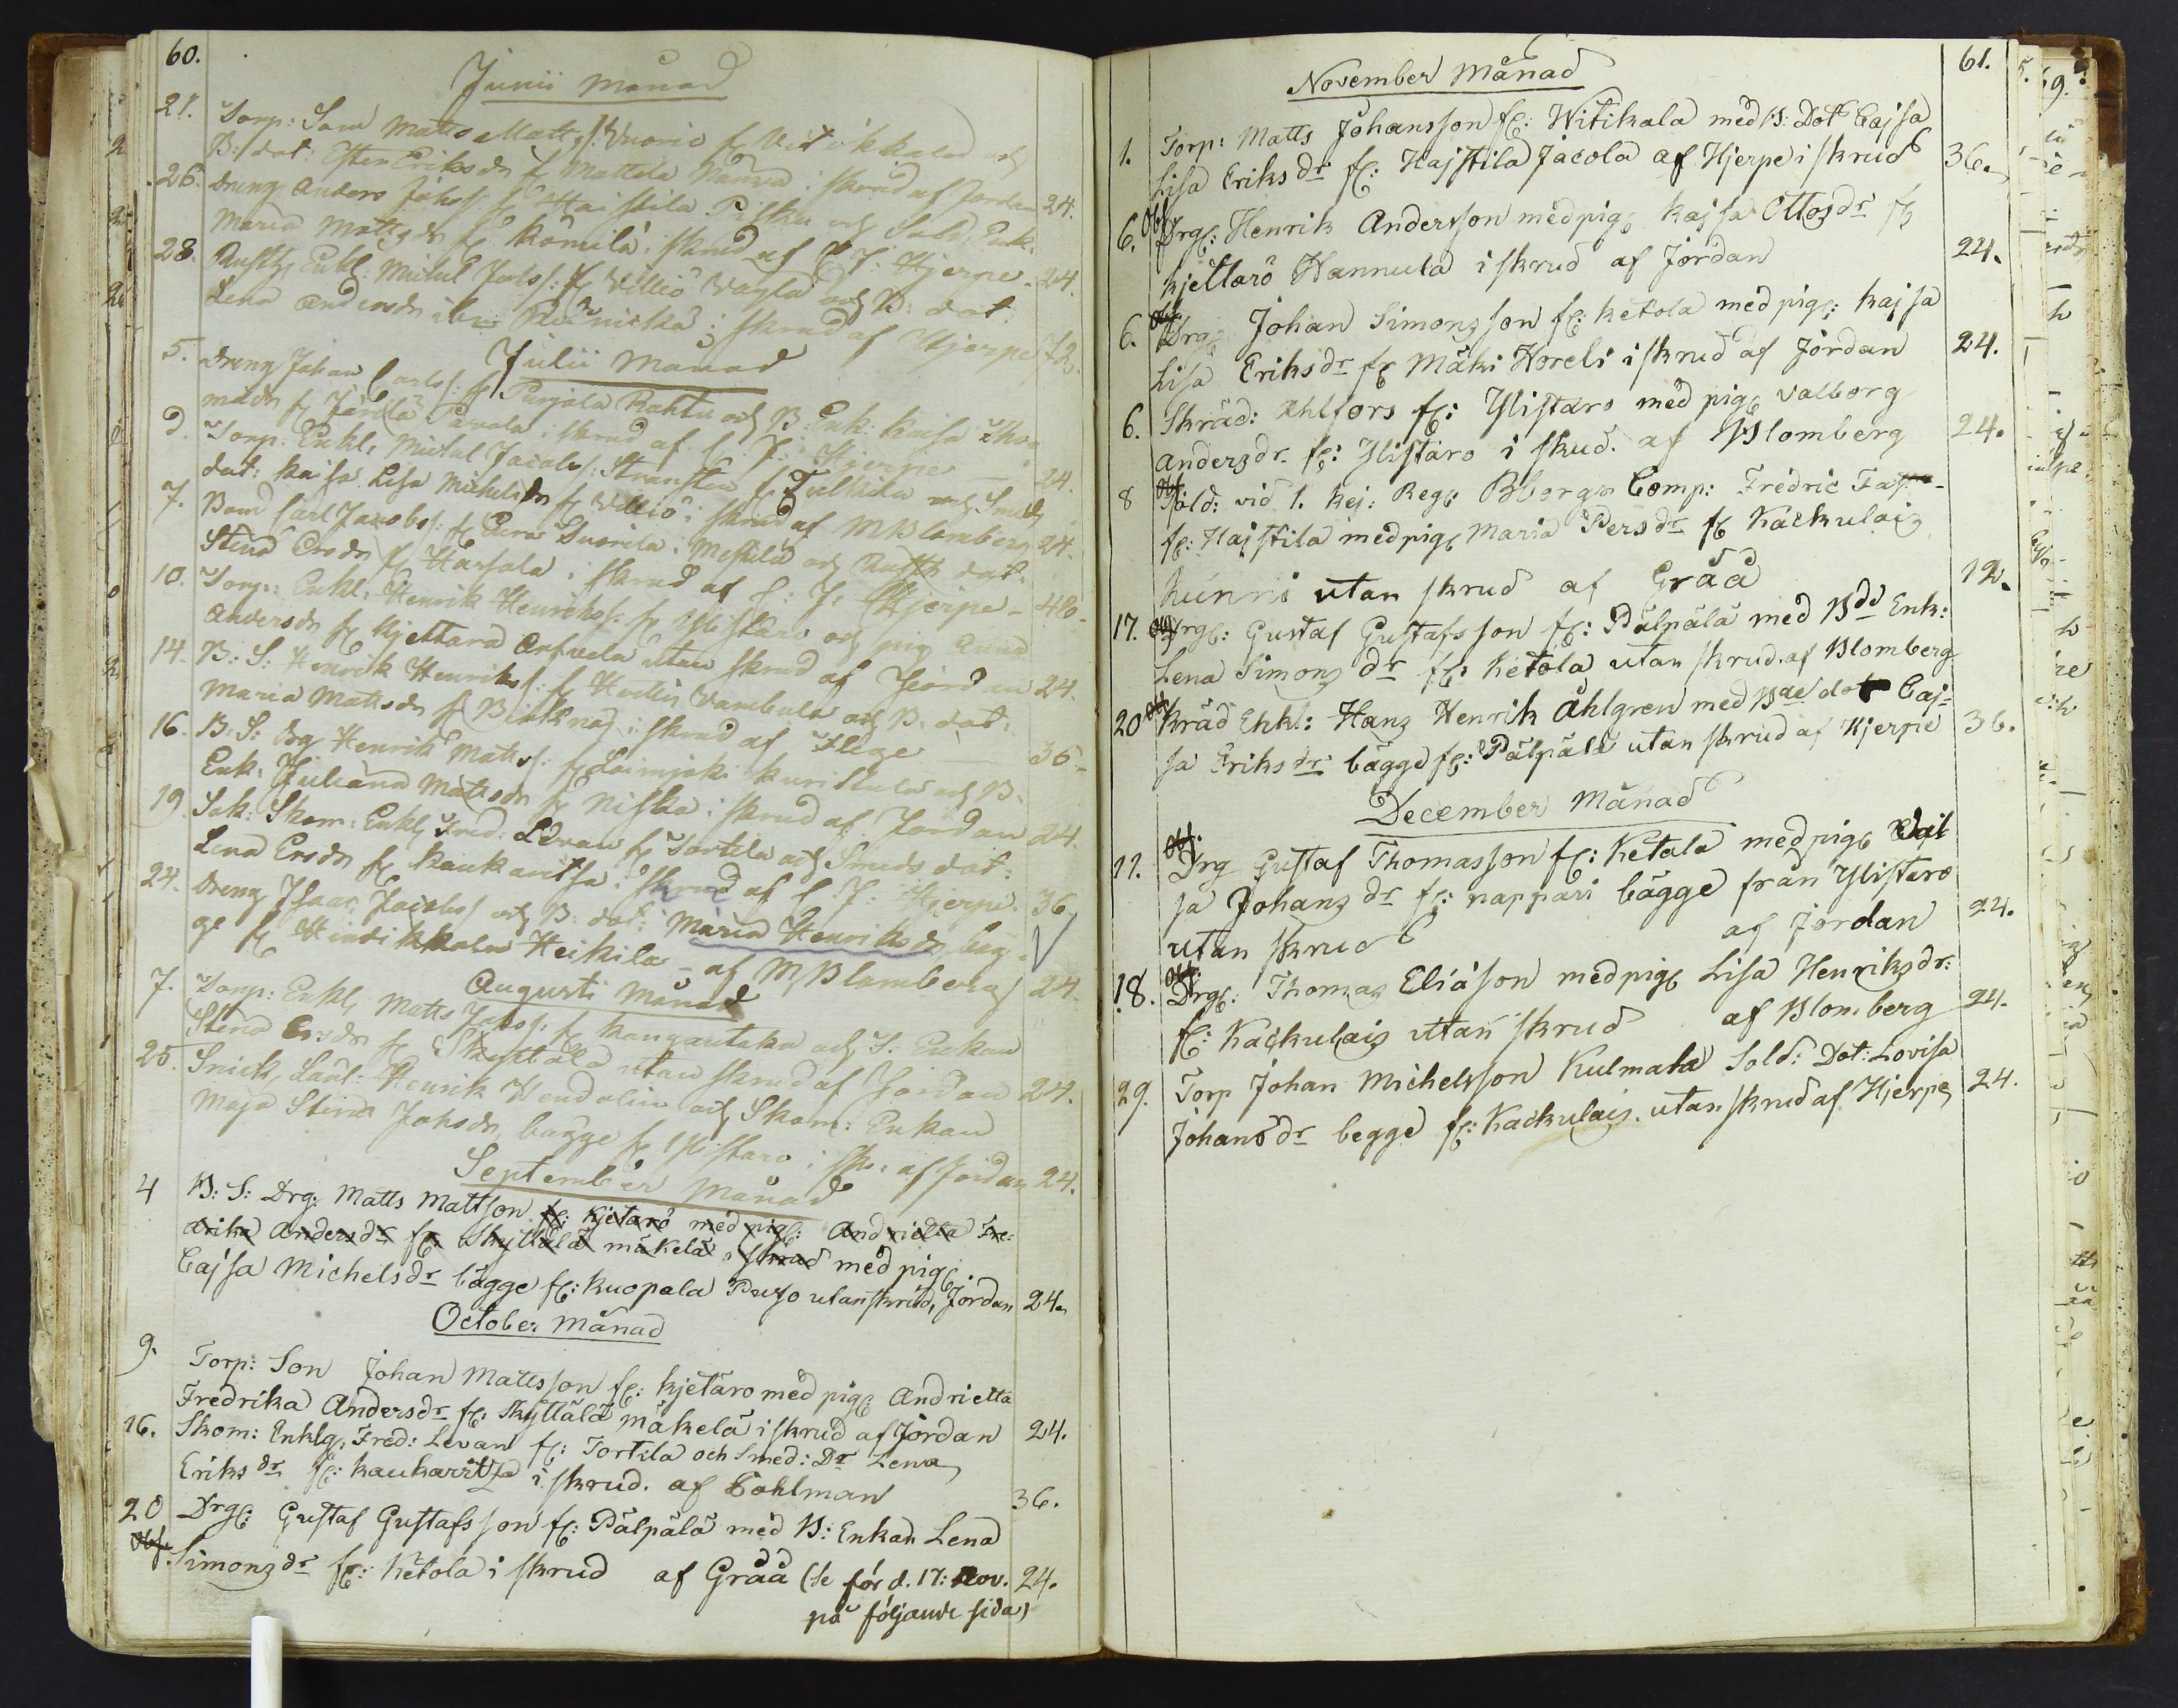 60.
Junii Månad
21. Torp: Son Matts Matts: Vuorio fr Vitikkala och
B: dot: Ester Eriksdr fr Mattila Nännä i skrud af Jordan 24.
26. Dreng Anders Johs: fr Haistila Pisku och Sold: Enk:
Maria Mattsdr fr Kömilä i skrud af C. J. Hjerpe - 24.
28. Rusth: Enkl: Michel Jacobs: fr Villiö Väglä och B: dot:
Lena Andersdr i skrud af Hjerpe 72.
Julii Månad
5. Dreng Johan Carls: fr Purjala Rahtu och B: Enk: Kaisa Tho-
mädr fr Pavola i skrud af C. J. Hjerpe 24.
d. Torp: Enkl: Michel Jacobs: Stranstén fr Tulkkila och Smeds
dot: Kaisa Lisa Michelsdr fr Villiö i skrud af M Blomberg 24.
7. Bond Carl Jacobs: fr Suorila i Mestilä och Rusth: dot:
Stina Ersdr fr Harjala i skrud af C: J: Hjerpe - 48.
10. Torp: Enkl: Henrik Henriks: fr Ylistaro och pig Anna
Andersdr fr Kjettarä Arfvela utan skrud af Jordan 24.
14. B: S: Henrik Henriks: fr Vambula och B: dot:
Maria Mattsdr fr i skrud af Flege 36 -
16. B: S: Drg Henrik Matts: fr Loimjoki Kuriskala och B:
Enk: Juliana Mattsdr fr Niska i skrud af Jordan 24.
19. Sok: Skom: Enkl: Fred: Levan fr Tortila och Smeds dot:
Lena Ersdr fr Kaukaritsa i skrud af C. J. Hjerpe. 36
24. Dreng Isaac Jacobs: och B: dot: Maria Henriksdr beg-
ge fr Hindikkala Heikila - af M Blomberg 24.
Augusti Månad
7. Torp: Enkl: Matts Jacs: fr Kangantaka och S: Enkan
Stina Ersdr fr utan skrud af Jordan 24.
25. Snick: Lärl: Henrik Hendolin och Skom: Enkan
Maja Stina Johsdr bägge fr Ylistaro i skr: af Jordan 24.
September Månad
4 B: S: Drg: Matts Mattson fr: Kjetarö med pig: Andrietta Fre-
drika Andersdr fr: Skyttälä mäkelä i skrud med pig:
Cajsa Michelsdr bägge fr: Kuopala Puso utan skrud, Jordan 24.
October Månad
9. Torp: Son Johan Mattsson fr: Kjetäro med pig: Andrietta
Fredrika Andersdr fr: Skyttälä mäkelä i skrud af Jordan 24.
16. Skom: Enklg: Fred: Levan fr: Tortila och Smed: Dr Lena
Eriksdr fr: Kaukaritsa i skrud. af Bohlman 36.
20 Drg: Gustaf Gustafsson fr: Pälpälä med B: Enkan Lena
Obs. Simonsdr fr: Ketola i skrud af Gråå (Se för d. 17: Nov. 24.
på följande sida)
61.
November Månad
1. Torp: Matts Johansson fr: Witikala med B: Dot Cajsa
Lisa Eriksdr fr: Hajstila Jacola af Hjerpe i skrud 36.
6. Obs. Drg: Henrik Andersson med pig: Kajsa Ottosdr fr
Kjettarö Hannula i skrud af Jordan 24.
6. Obs. Drg: Johan Simonsson fr: Ketola med pig: Kajsa
Lisa Eriksdr fr Mäki Horeli i skrud af Jordan 24.
6. Skräd: Ahlfors fr: Ylistaro med pig: Valborg
Andersdr fr: Ylistaro i skud. af Blomberg 24.
8 Obs. Sold: vid 1. Kej: Reg: Bborgs Comp: Fredric
fr: Hajstila med pig: Maria Persdr fr Kackulais
Künni utan skrud af Gråå 12.
17. Obs. Drg: Gustaf Gustafsson fr: Pälpälä med Bdd Enk:
Lena Simonsdr fr: Ketola utan skrud. af Blomberg
20 Obs. Skräd Ehkl: Hans Henrik Åhlgren med Bde dot Caj-
sa Eriksdr bägge fr: Pälpälä utan skrud af Hjerpe 36.
December Månad
11. Obs. Drg Gustaf Thomasson fr: Ketala med pig:
sa Johansdr fr: nappari bägge från Ylistaro
utan skrud af Jordan 24.
18. Obs. Drg: Thomas Eliason med pig: Lisa Henriksdr:
fr: Kackulais utan skrud af Blomberg 24.
29. Torp Johan Michelsson Kulmala Sold: Dot: Lovisa
Johansdr begge fr: Kackulais. utan skrud af Hjerpe 24.